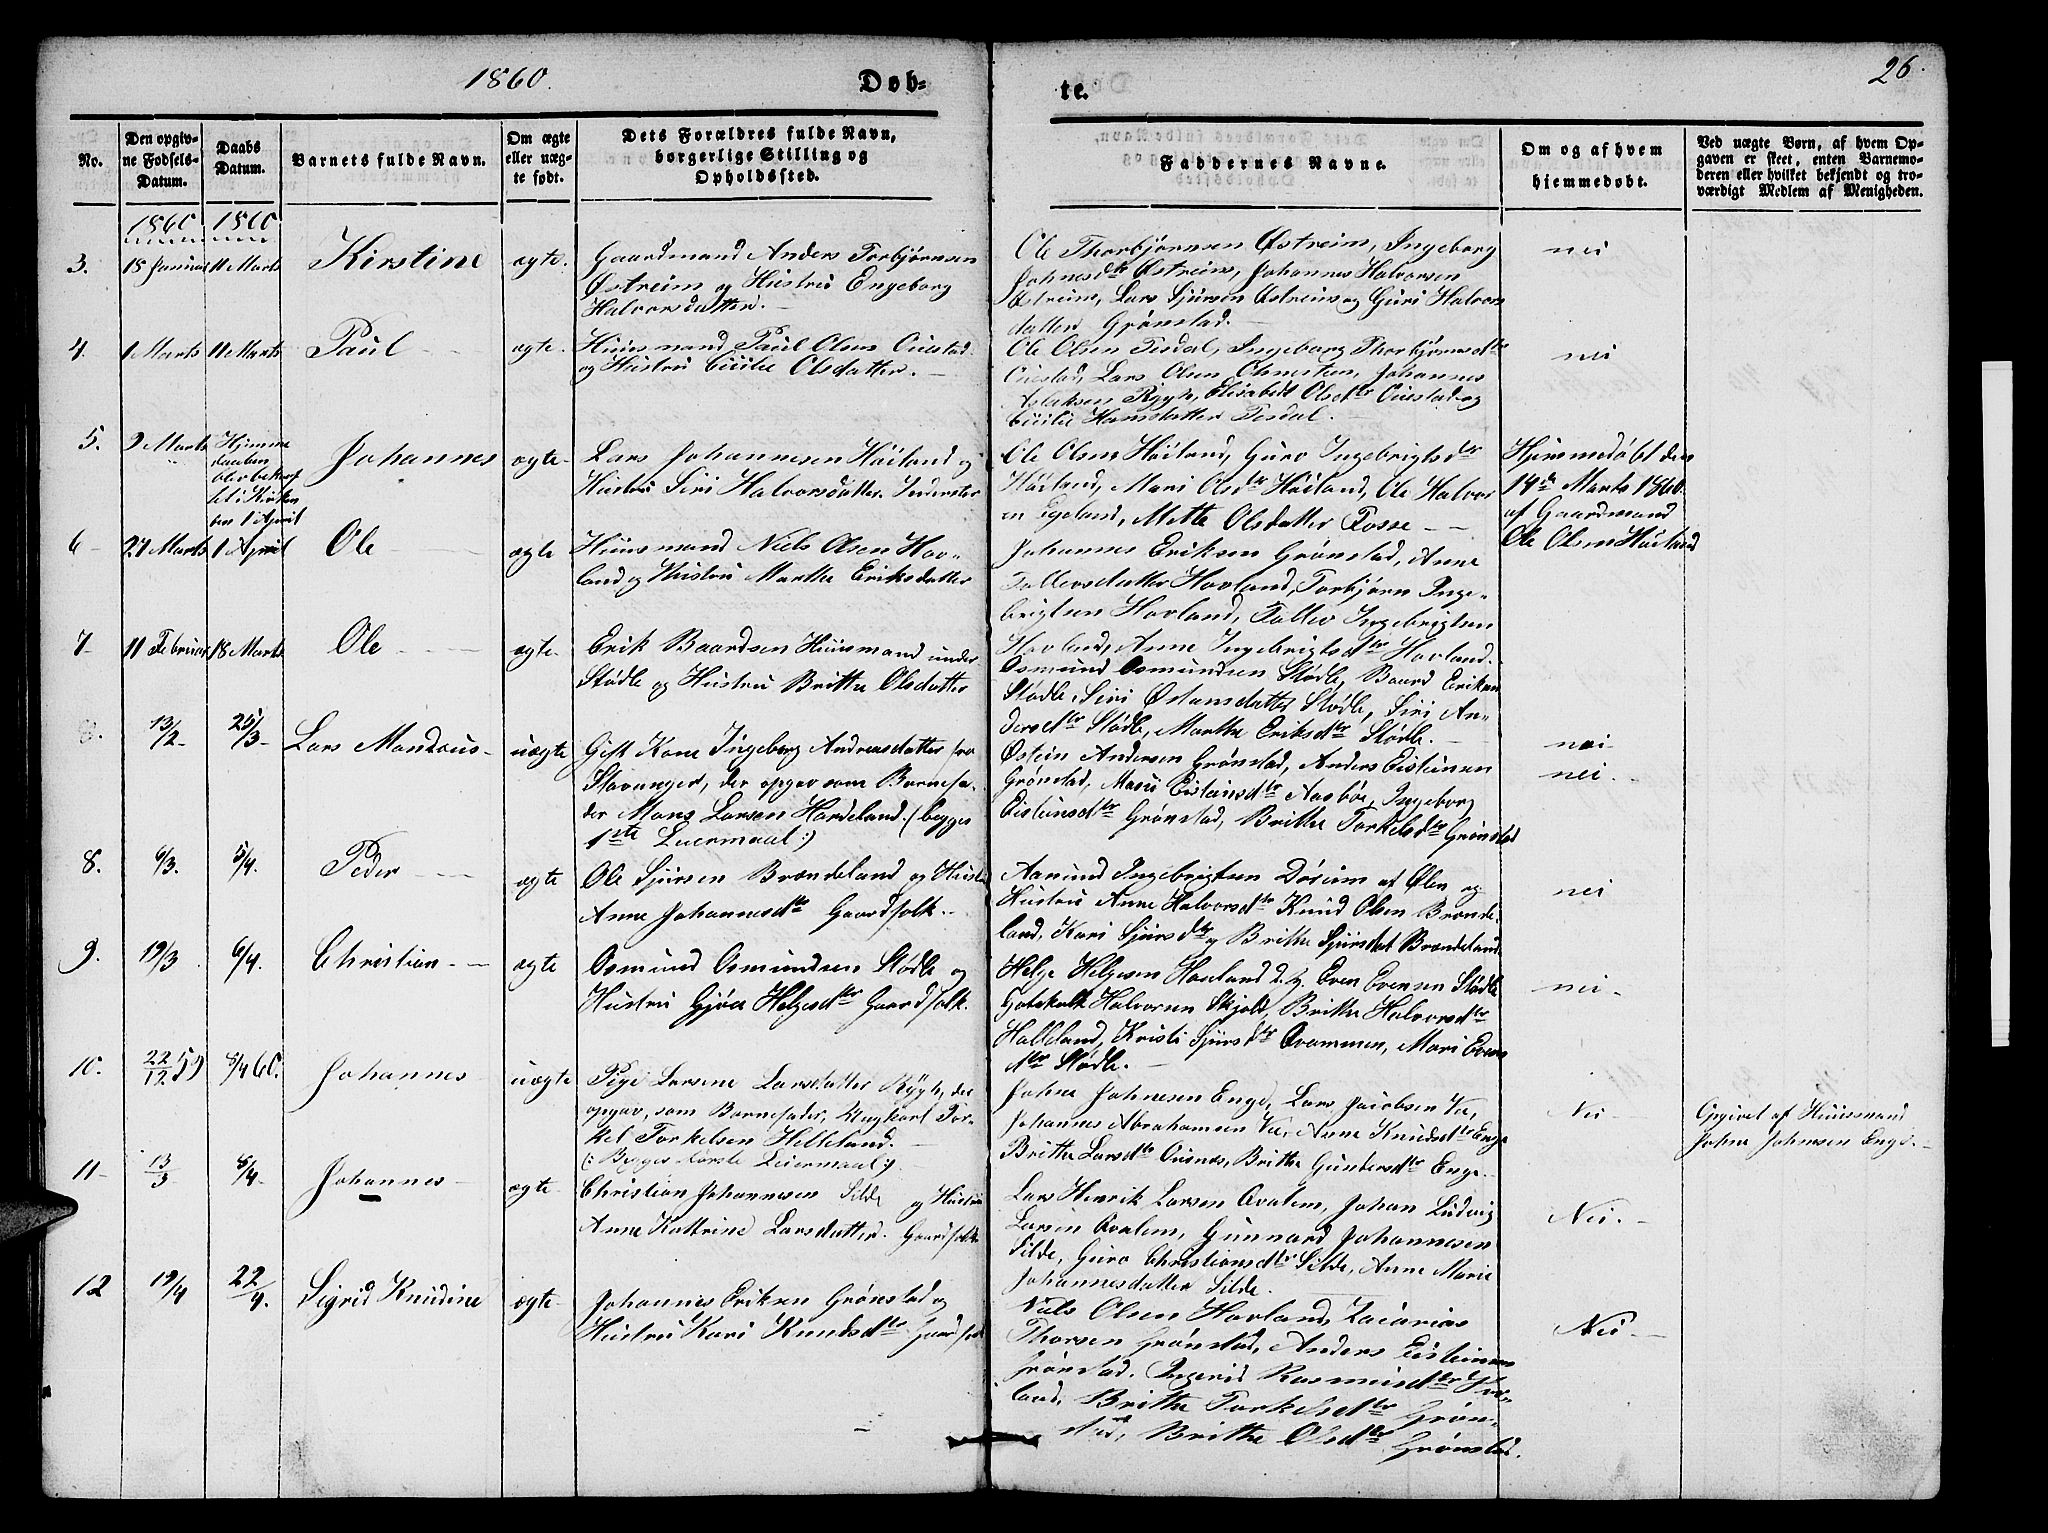 1860.
Døb-
te.
26.
No.
Den opgiv-
ne Fødsels-
Datum.
Daabs
Datum.
Barnets fulde Navn.
Om ægte
eller uæg-
te født.
Dets Forældres fulde Navn,
borgerlige Stilling og
Opholdssted.
Faddernes Navne.
Om og af hvem
hjemmedøbt.
Ved uægte Børn, af hvem Op-
gaven er skeet, enten Barnemo-
deren eller hvilket bekjendt og tro-
værdigt Medlem af Menigheden.
1860 1860
3. 15 Januar 11 Marts Kirstine ægte.
Gaardmand Anders Torbjørnsen
Østreim og Hustru Engeborg
Halvorsdatter.
Ole Thorbjørnsen Østreim, Ingeborg
Johnesdtr Østreim, Johannes Halvorsen
Østreim, Lars Sjursen Østreim og Guri Halvors
datter Grønstad.
nei
4. 1 Marts 11 Marts Paul ægte.
Huusmand Paul Olsen
og Hustru Cicilie Olsdatter.
Ole Olsen Tesdal, Ingeborg Thorbjørnsdtr
Lars Olsen Johannes
Aslaksen Rygh, Elisabeth Olsdtr og
Cicilie Hansdatter Tesdal.
nei
5. 9 Marts Hjemme
daaben
blev bekræf
tet i Kirken
den 1 April
Johannes ægte-
Lars Johannesen Høiland og
Hustru Siri Halvorsdatter. Inderster
Ole Olsen Høiland, Guro Ingebrigtsdtr
Høiland, Mari Olsdtr Høiland, Ole Halvor
en Egeland, Mette Olsdatter Fosse
Hjemmedøbt den
14de Marts 1860.
af Gaardmand
Ole Olsen Høiland
6 27 Marts 1 April Ole ægte
Huusmand Niels Olsen Hov-
land og Hustru Marthe Eriksdatter
Johannes Eriksen Grønstad, Anne
Tollevsdatter Hovland, Torbjørn Inge-
brigtsen Hovland, Tollev Ingebrigtsen
Hovland, Anne Ingebrigtsdtr Hovland.
7 11 Februar 18 Marts Ole ægte-
Erik Baardsen Huusmand under
Stødle og Hustru Britha Olsdatter
Osmund Osmundsen Stødle, Baard Eriksen
Stødle, Siri Østensdatter Stødle, Siri An-
dersdtr Stødle, Marthe Eriksdtr Stødle.
nei
8. 13/2 25/3 Lars Mandæus- uægte
Gift Kone Ingeborg Andreasdatter fra
Stavanger, der opgav som Barnefa-
der Mons Larsen Hardeland. (begges
1ste Leiermaal:)
Østein Andersen Grønstad, Anders Eistensen
Grønstad, Mari Eistensdtr Aasbøe, Ingeborg
Eistensdtr Grønstad, Brithe Torkelsdtr Grønstad
nei.
8. 6/3. 5/4. Peder ægte
Ole Sjursen Brændeland og Hustru
Anne Johannesdtr Gaardfolk.
Aamund Ingebrigtsen Døsium af Ølen og
Hustru Anne Halvorsdtr Knud Olsen Brænde-
land, Kari Sjursdtr og Brithe Sjursdat Brændeland.
nei
9. 19/3. 6/4. Christian ægte
Osmund Osmundsen Stødle og
Hustru Gjøa Helgesdtr Gaardfolk.
Helge Helgesen Hoveland d. y. Even Evensen Stødle
Gotskalk Halvorsen Skjold, Brithe Halvorsdtr
Halleland, Kristi Sjursdtr Qvammen, Mari Evens
dtr Stødle.
nei.
10. 22/12 59 8/4 60. Johannes uægte
Pige Larsine Larsdatter Rygh, der
opgav, som Barnefader, Ungkarl Tor-
kel Torkelsen Helleland.
(: Begges første Leiermaal:).
Johne Johnesen Enge, Lars Jacobsen Vee,
Johannes Abrahamsen Vee, Anne Knudsdtr Enge
Brithe Larsdtr Ousnæs, Brithe Gundersdtr Enge.
Nei
Opgivet af Huusmand
Johne Johnsen Enge.
11 13/3 8/4 Johannes ægte
Christian Johannesen Silde og Hustru
Anne Kattrine Larsdatter. Gaardfolk
Lars Henrik Larsen Qvalem, Johan Ludvig
Larsen Qvalem, Gunnard Johannesen
Silde, Guro Christiansdtr Silde, Anne Marie
Johannesdatter Silde.
Nei.
12 19/4 22/4. Sigrid Knudine ægte
Johannes Eriksen Grønstad og
Hustru Kari Knudsdtr Gaardfolk
Niels Olsen Hovland, Zacarias
Thorsen Grønstad, Anders Eistensen
Grønstad, Ingerid Rasmusdtr Hov-
land, Brithe Torkelsdtr Grøn-
stad, Brithe Olsdtr Grønstad.
Nei